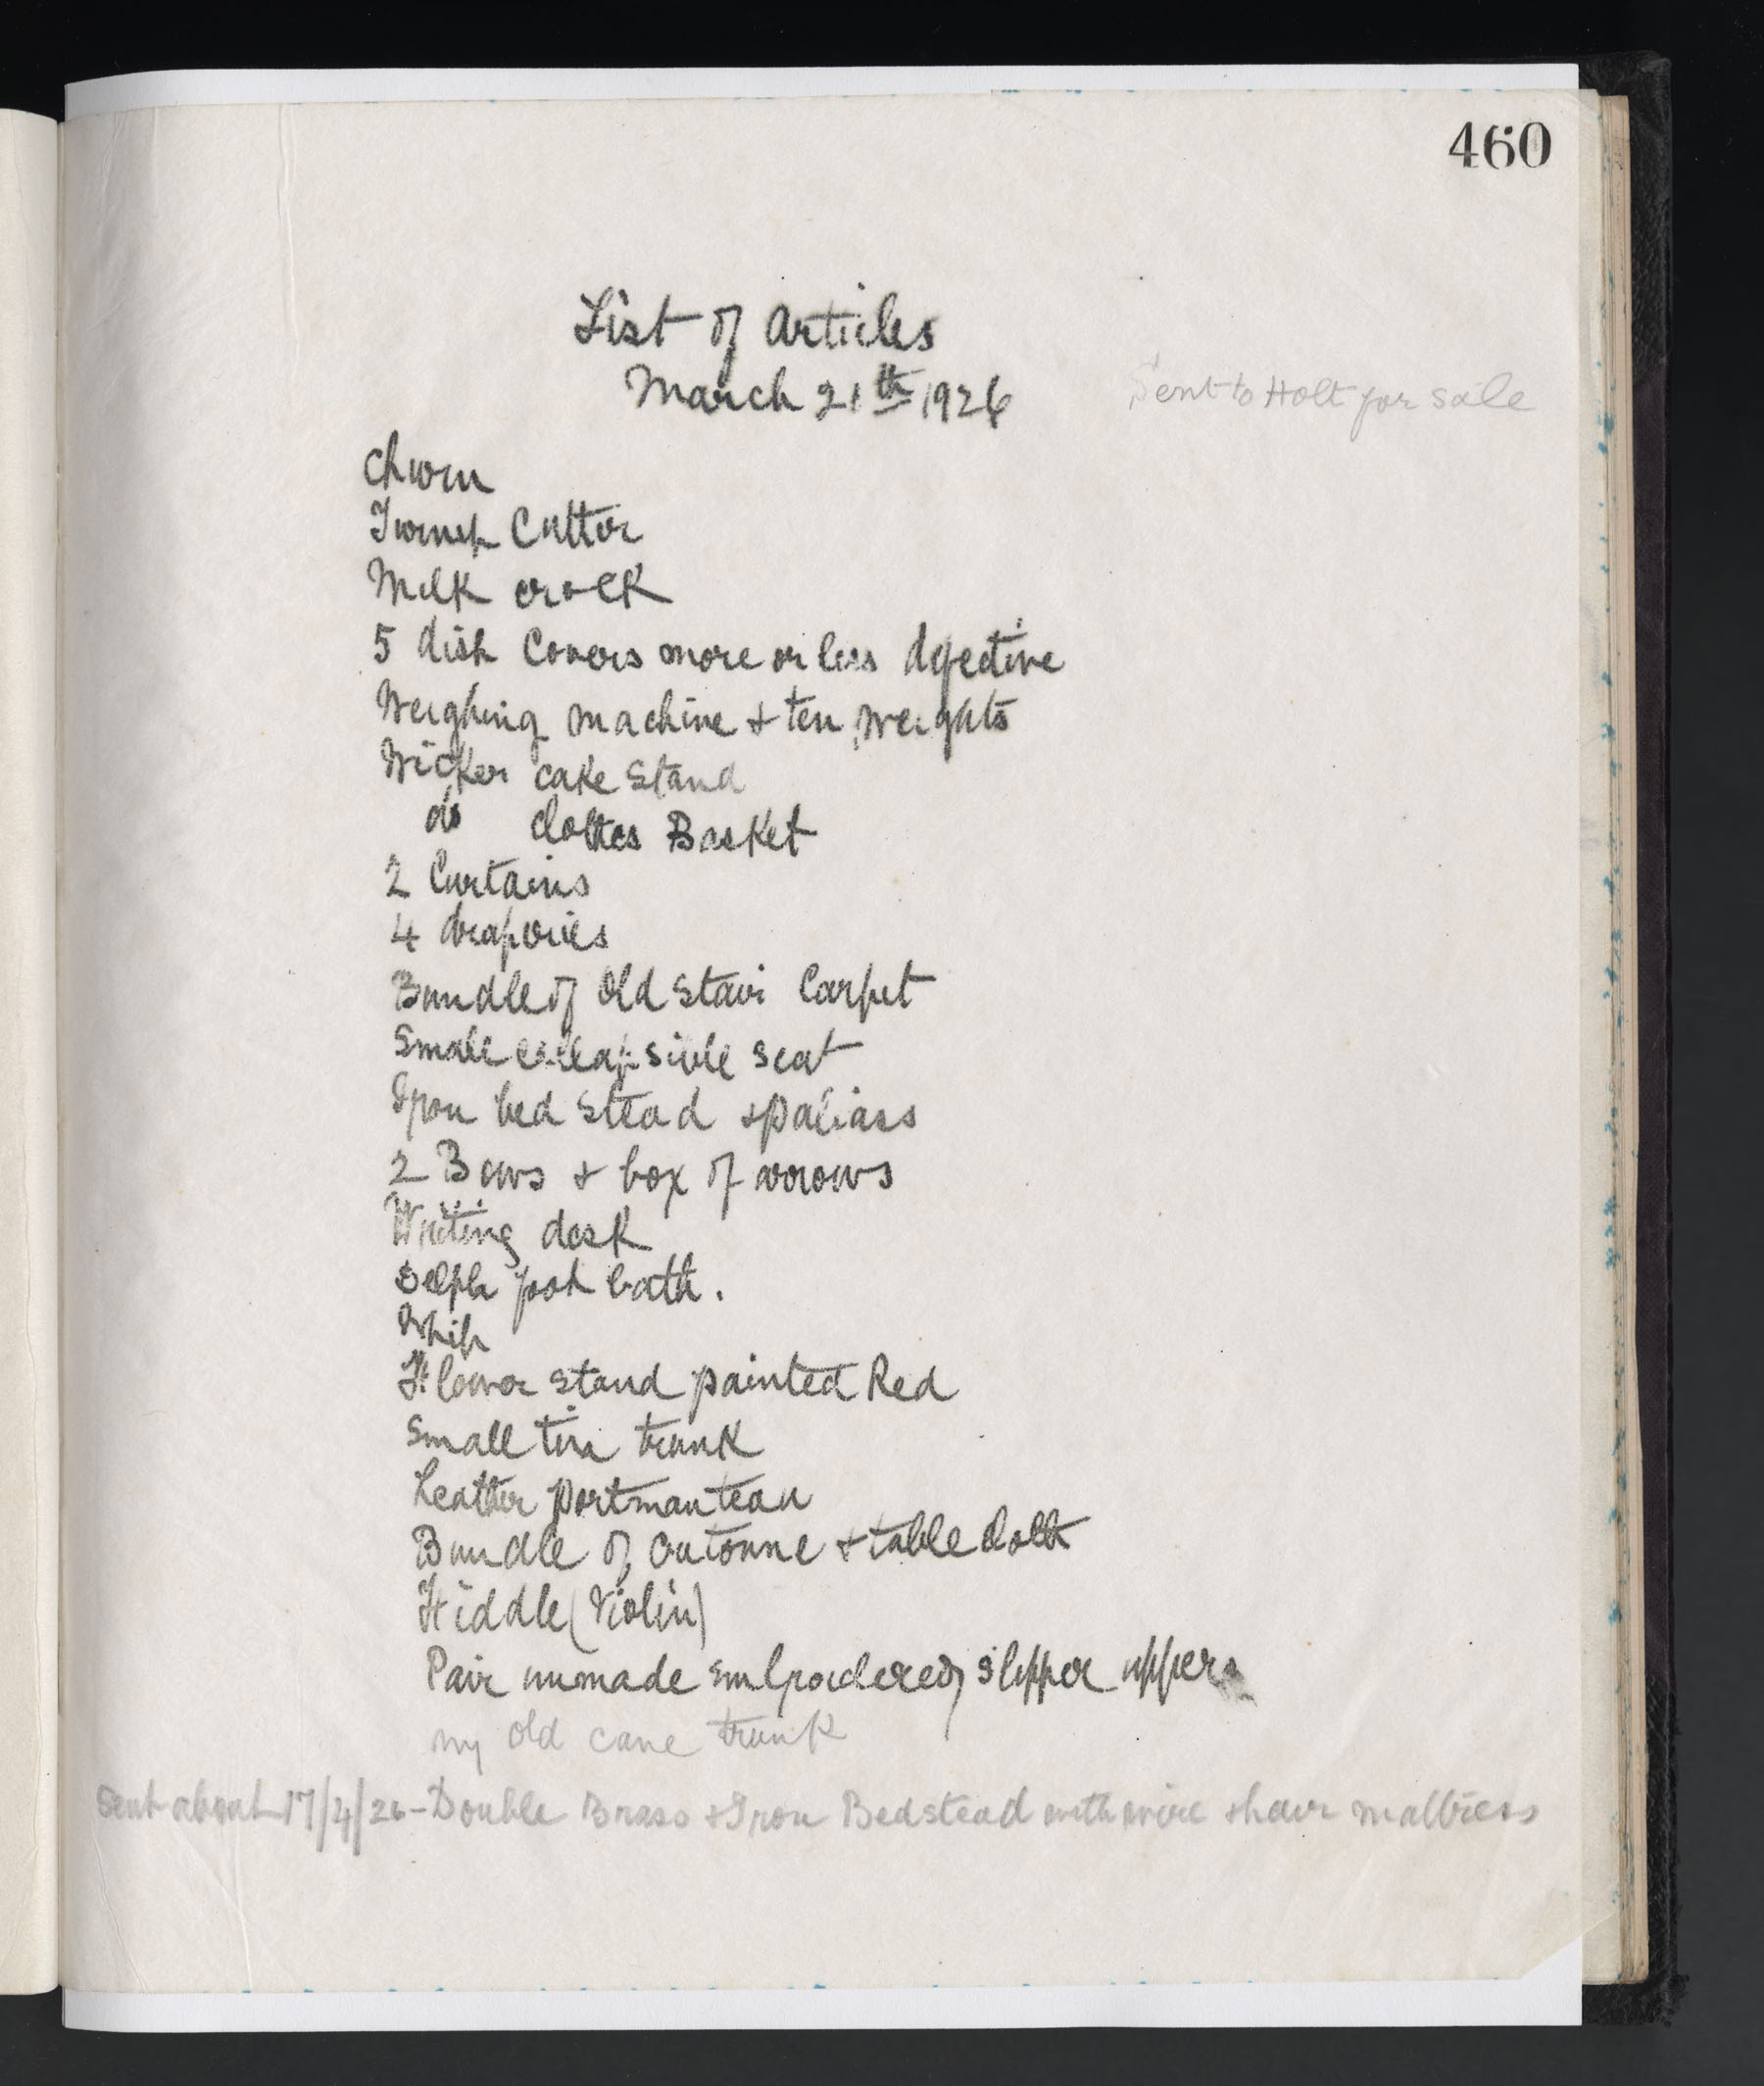 460
List of Articles
March 21th 1926
Sent to Holt for sale
Churn
Turnip Cutter
Milk crock
5 dish Covers more or less defective
Weighing machine + ten weights
Wicker cake stand
do clothes Basket
2 Curtains
4 draperies
Bundle of Old Stair Carpet
Small collapsible seat
Iron bed stead + paliass
2 Bows + box of arrows
Writing desk
Delph foot bath.
Whip
Flower stand painted Red
Small tin trunk
Leather portmanteau
Bundle of Cretonne + table cloth
Fiddle (Violin)
Pair unmade Embroidered slipper uppers
my old cane trunk
Sent about 17/4/26 - Double Brass + Iron Bedstead with wire + hair mattress